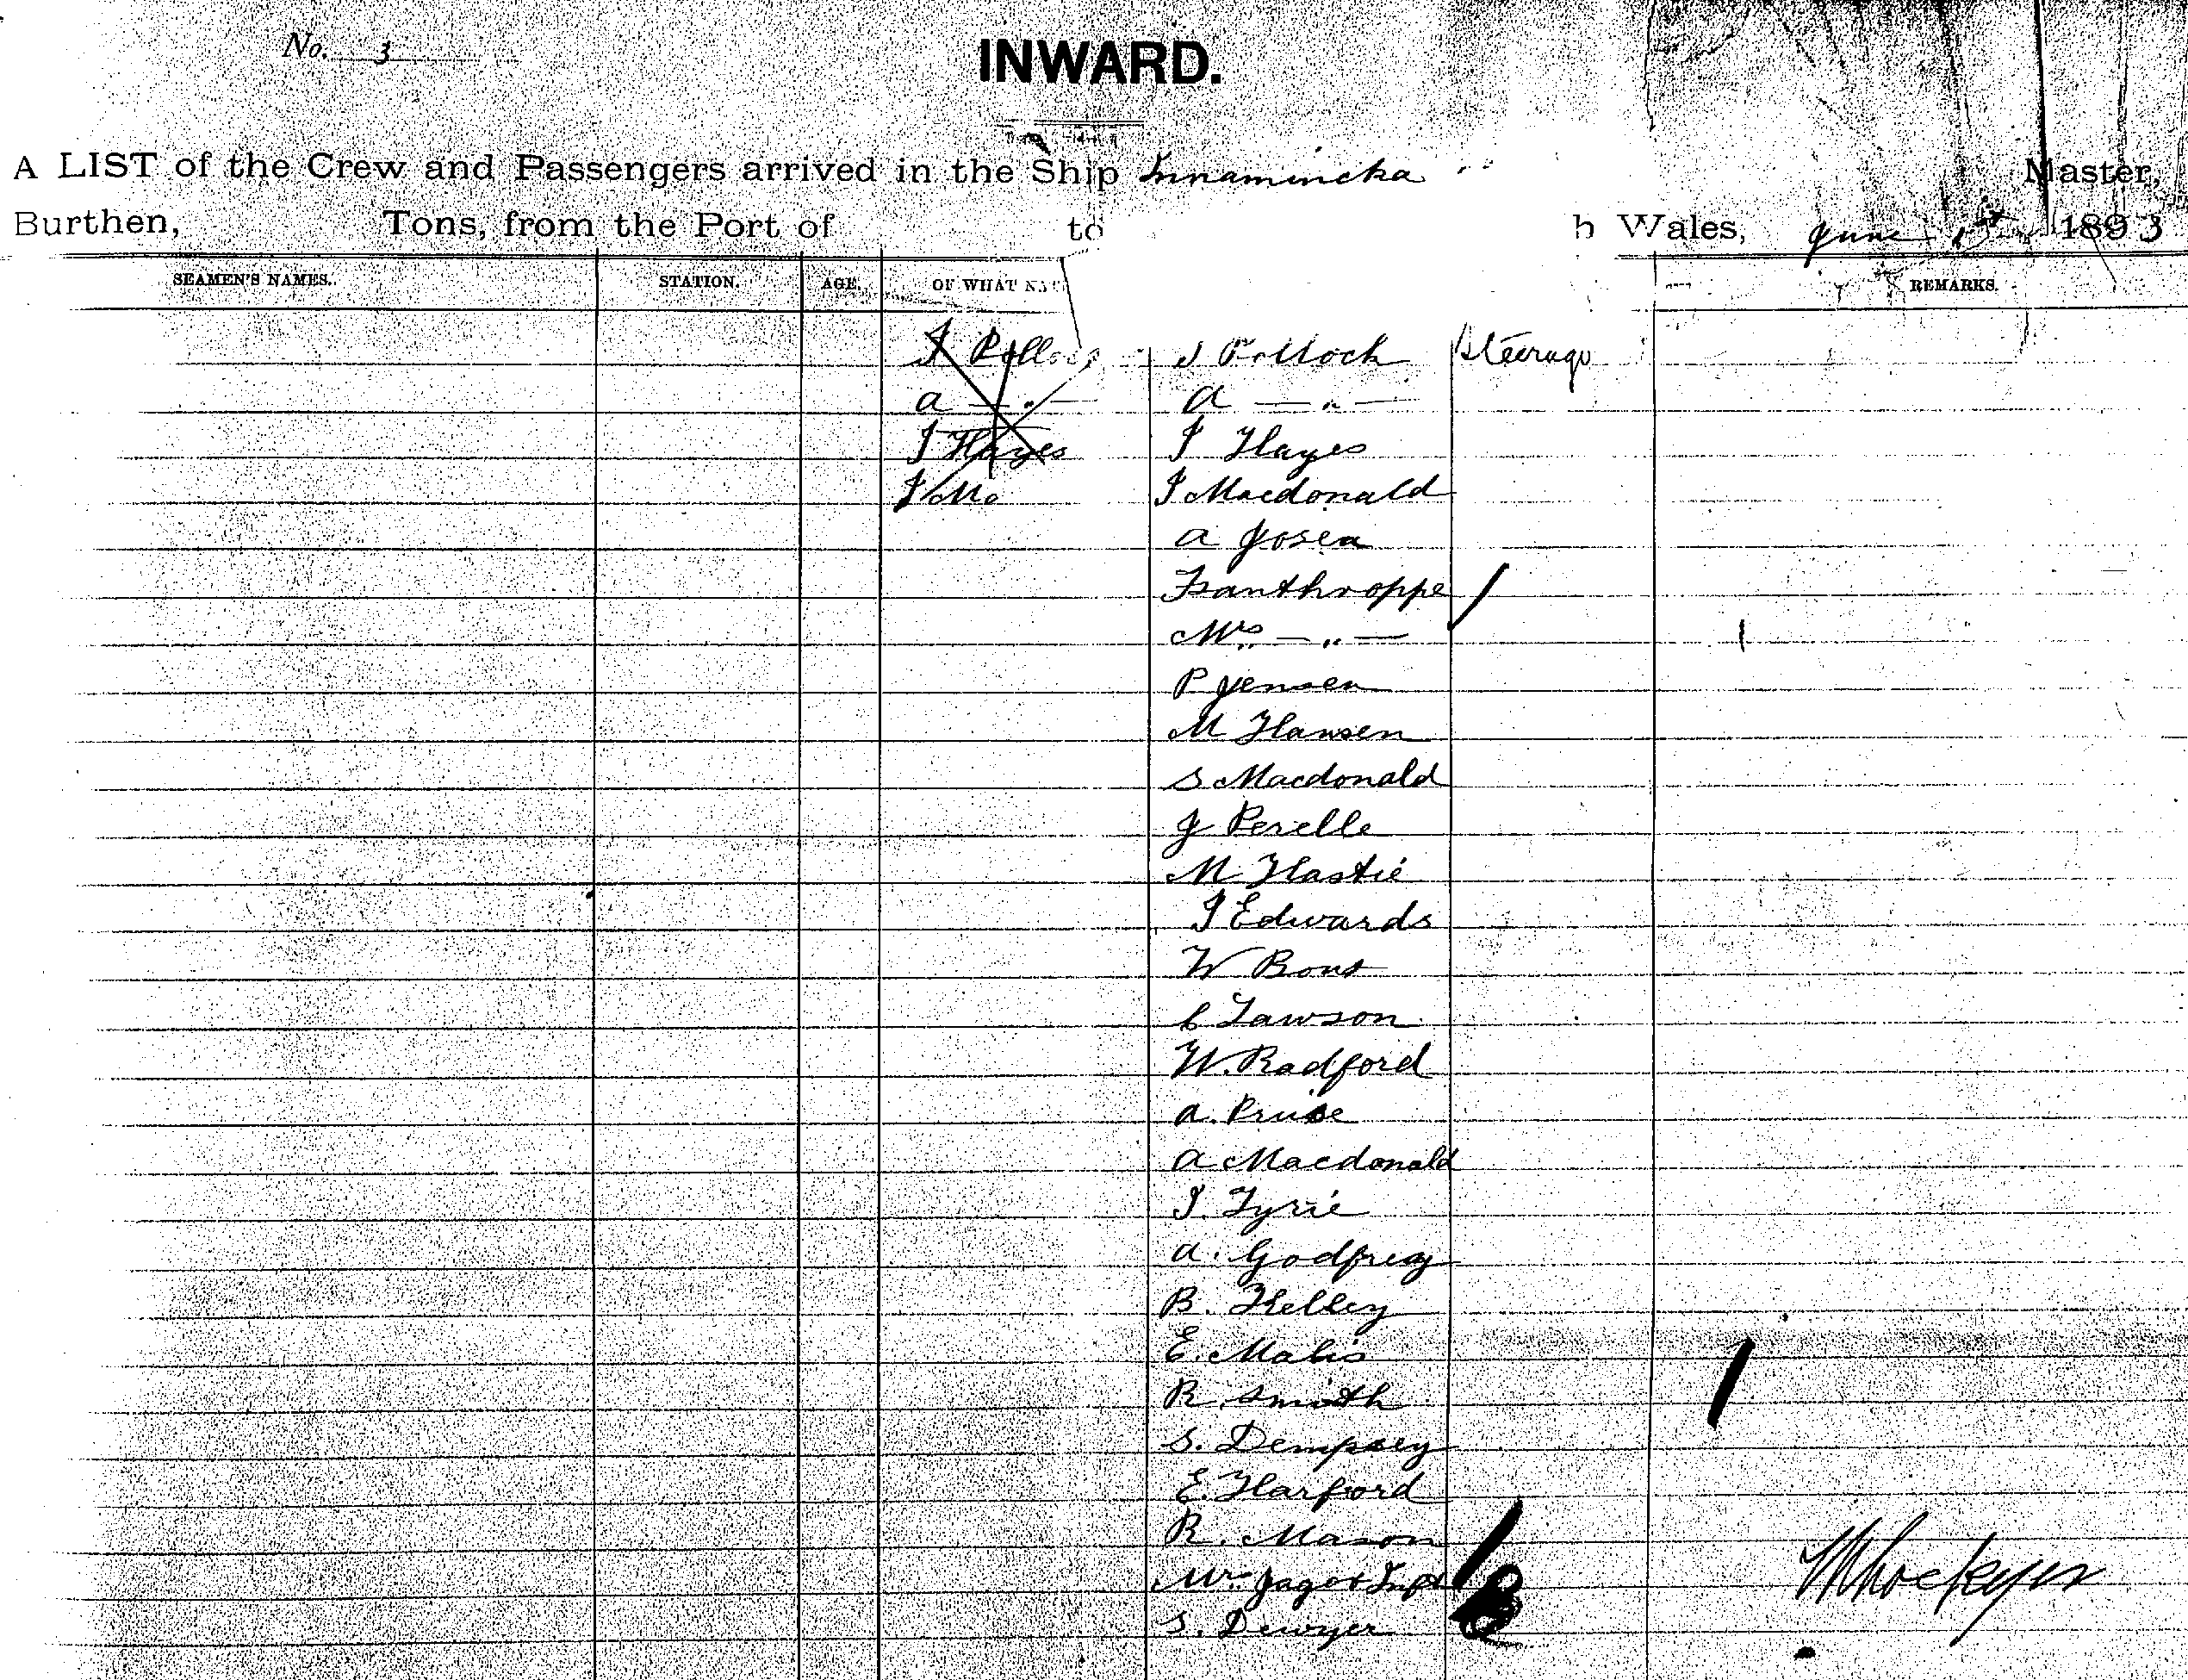 No. 3
INWARD.
A LIST of the Crew and Passengers arrived in the Ship Innamincka Master,
Burthen, Tons, from the Port of to h Wales, June 1893
SEAMEN'S NAMES. STATION. AGE. OF WHAT NAT REMARKS.
J Pollock J Pollock Steerage
a — " — a — " —
J Hayes J Hayes
J Mc J Macdonald
a Josen
Fanthroppe
Mrs — " —
P Jensen
M Hansen
S Macdonald
J Perelle
M Hastie
J Edwards
W Bout
C Lawson
W. Radford
a. Pruse
a Macdonald
J. Tyrie
a. Godfrey
B. Kelley
E. Malis
R Smith
S. Dempsey
E. Harford
R. Mason
Mrs Jagot Inft
S. Dewyer